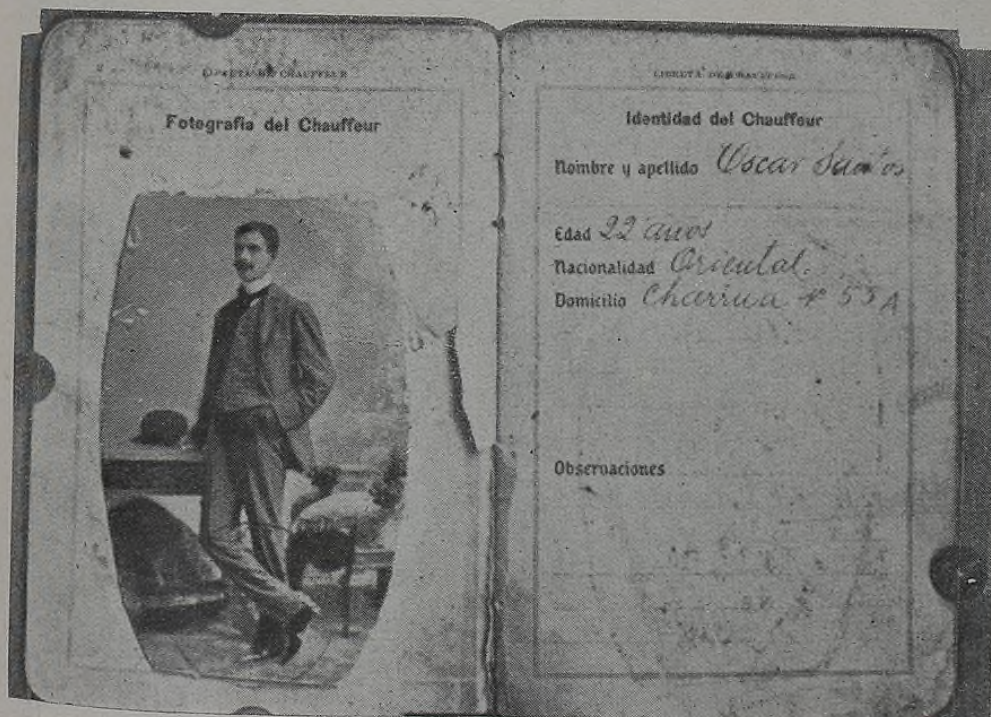 LIBRETA DE CHAUFFEUR
Fotografia del Chauffeur
LIBRETA DE CHAUFFEUR
Identidad del Chauffeur
Nombre y apellido Oscar Santos
Edad 22 años
Nacionalidad Oriental.
Domicilio Charrua Nº 55 A
Observaciones